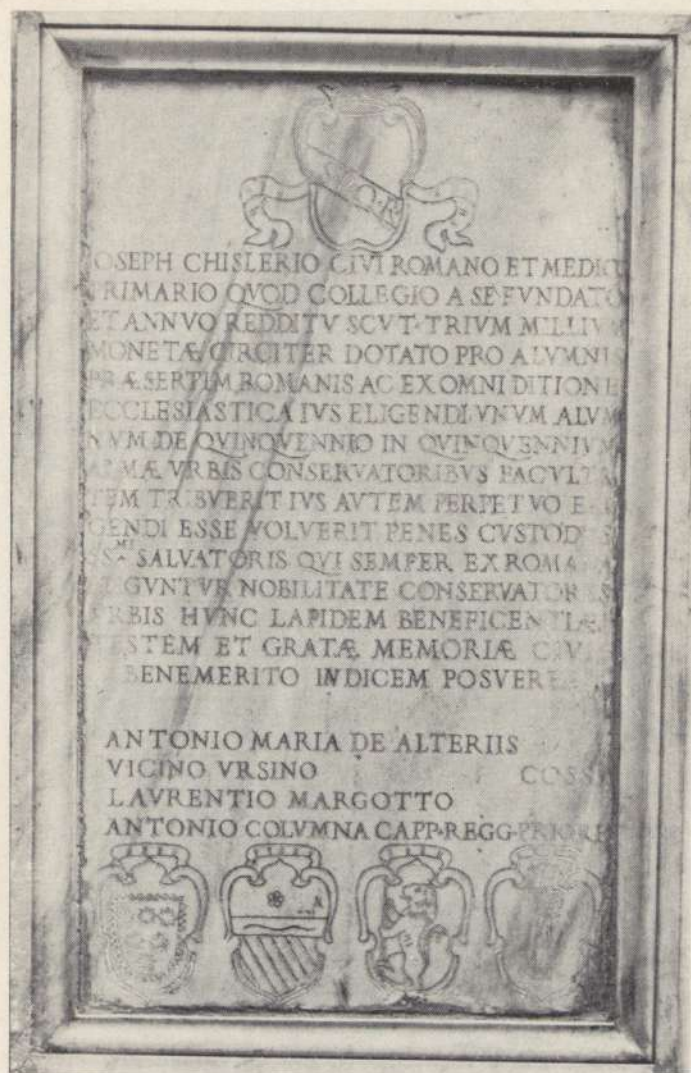 S·P·Q·R
IOSEPH CHISLERIO CIVI ROMANO ET MEDICO
PRIMARIO QVOD COLLEGIO A SE FVNDATO
ET ANNVO REDDITV SCVT·TRIVM MILLIVM
MONETÆ CIRCITER DOTATO PRO ALVMNIS
PRÆSERTIM ROMANIS AC EX OMNI DITIONE
ECCLESIASTICA IVS ELIGENDI VNVM ALVM
NVM DE QVINQVENNIO IN QVINQVENNIVM
ALMÆ VRBIS CONSERVATORIBVS FACVLTA
TEM TRIBVERIT IVS AVTEM PERPETVO ELI
GENDI ESSE VOLVERIT PENES CVSTODES
SS.MI SALVATORIS QVI SEMPER EX ROMANA
ELIGVNTVR NOBILITATE CONSERVATORES
VRBIS HVNC LAPIDEM BENEFICENTIÆ
TESTEM ET GRATÆ MEMORIÆ CIVI
BENEMERITO INDICEM POSVERE
ANTONIO MARIA DE ALTERIIS
VICINO VRSINO COSS
LAVRENTIO MARGOTTO
ANTONIO COLVMNA CAPP·REGG·PRIORE